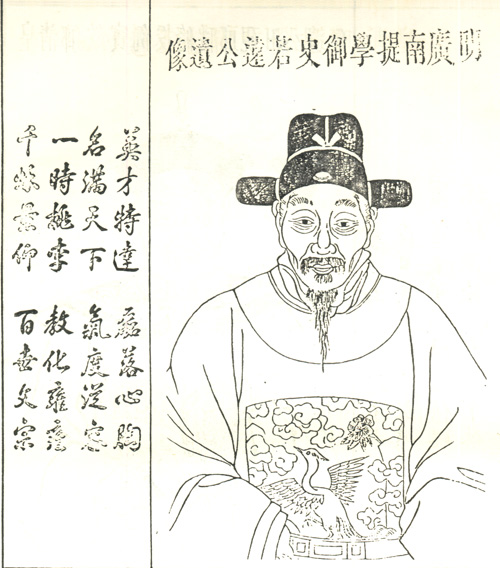 明廣南提學御史若蓬公遺像
英才特達 磊落心胸
名滿天下 氣度從容
一時桃李 教化雍雍
千秋景仰 百世文宗